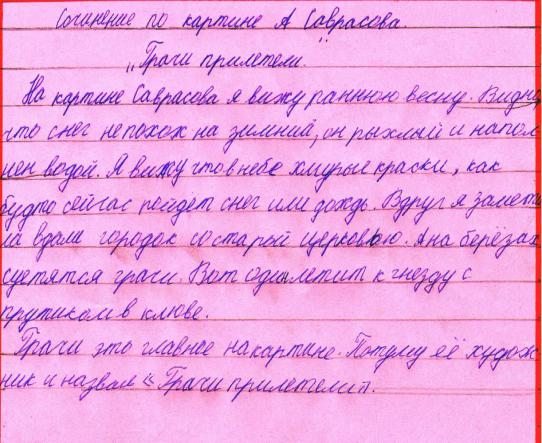 Сочинение по картине А Саврасова.
„Грачи прилетели."
На картине Саврасова я вижу раннюю весну. Видно,
что снег не похож на зимний, он рыхлый и напол
нен водой. Я вижу что в небе хмурые краски, как
будто сейчас пойдёт снег или дождь. Вдруг я замети
ла вдали городок со старой церковью. А на берёзах
суетятся грачи. Вот один летит к гнезду с
прутиком в клюве.
Грачи это главное на картине. Потому её худож
ник и назвал "Грачи прилетели".